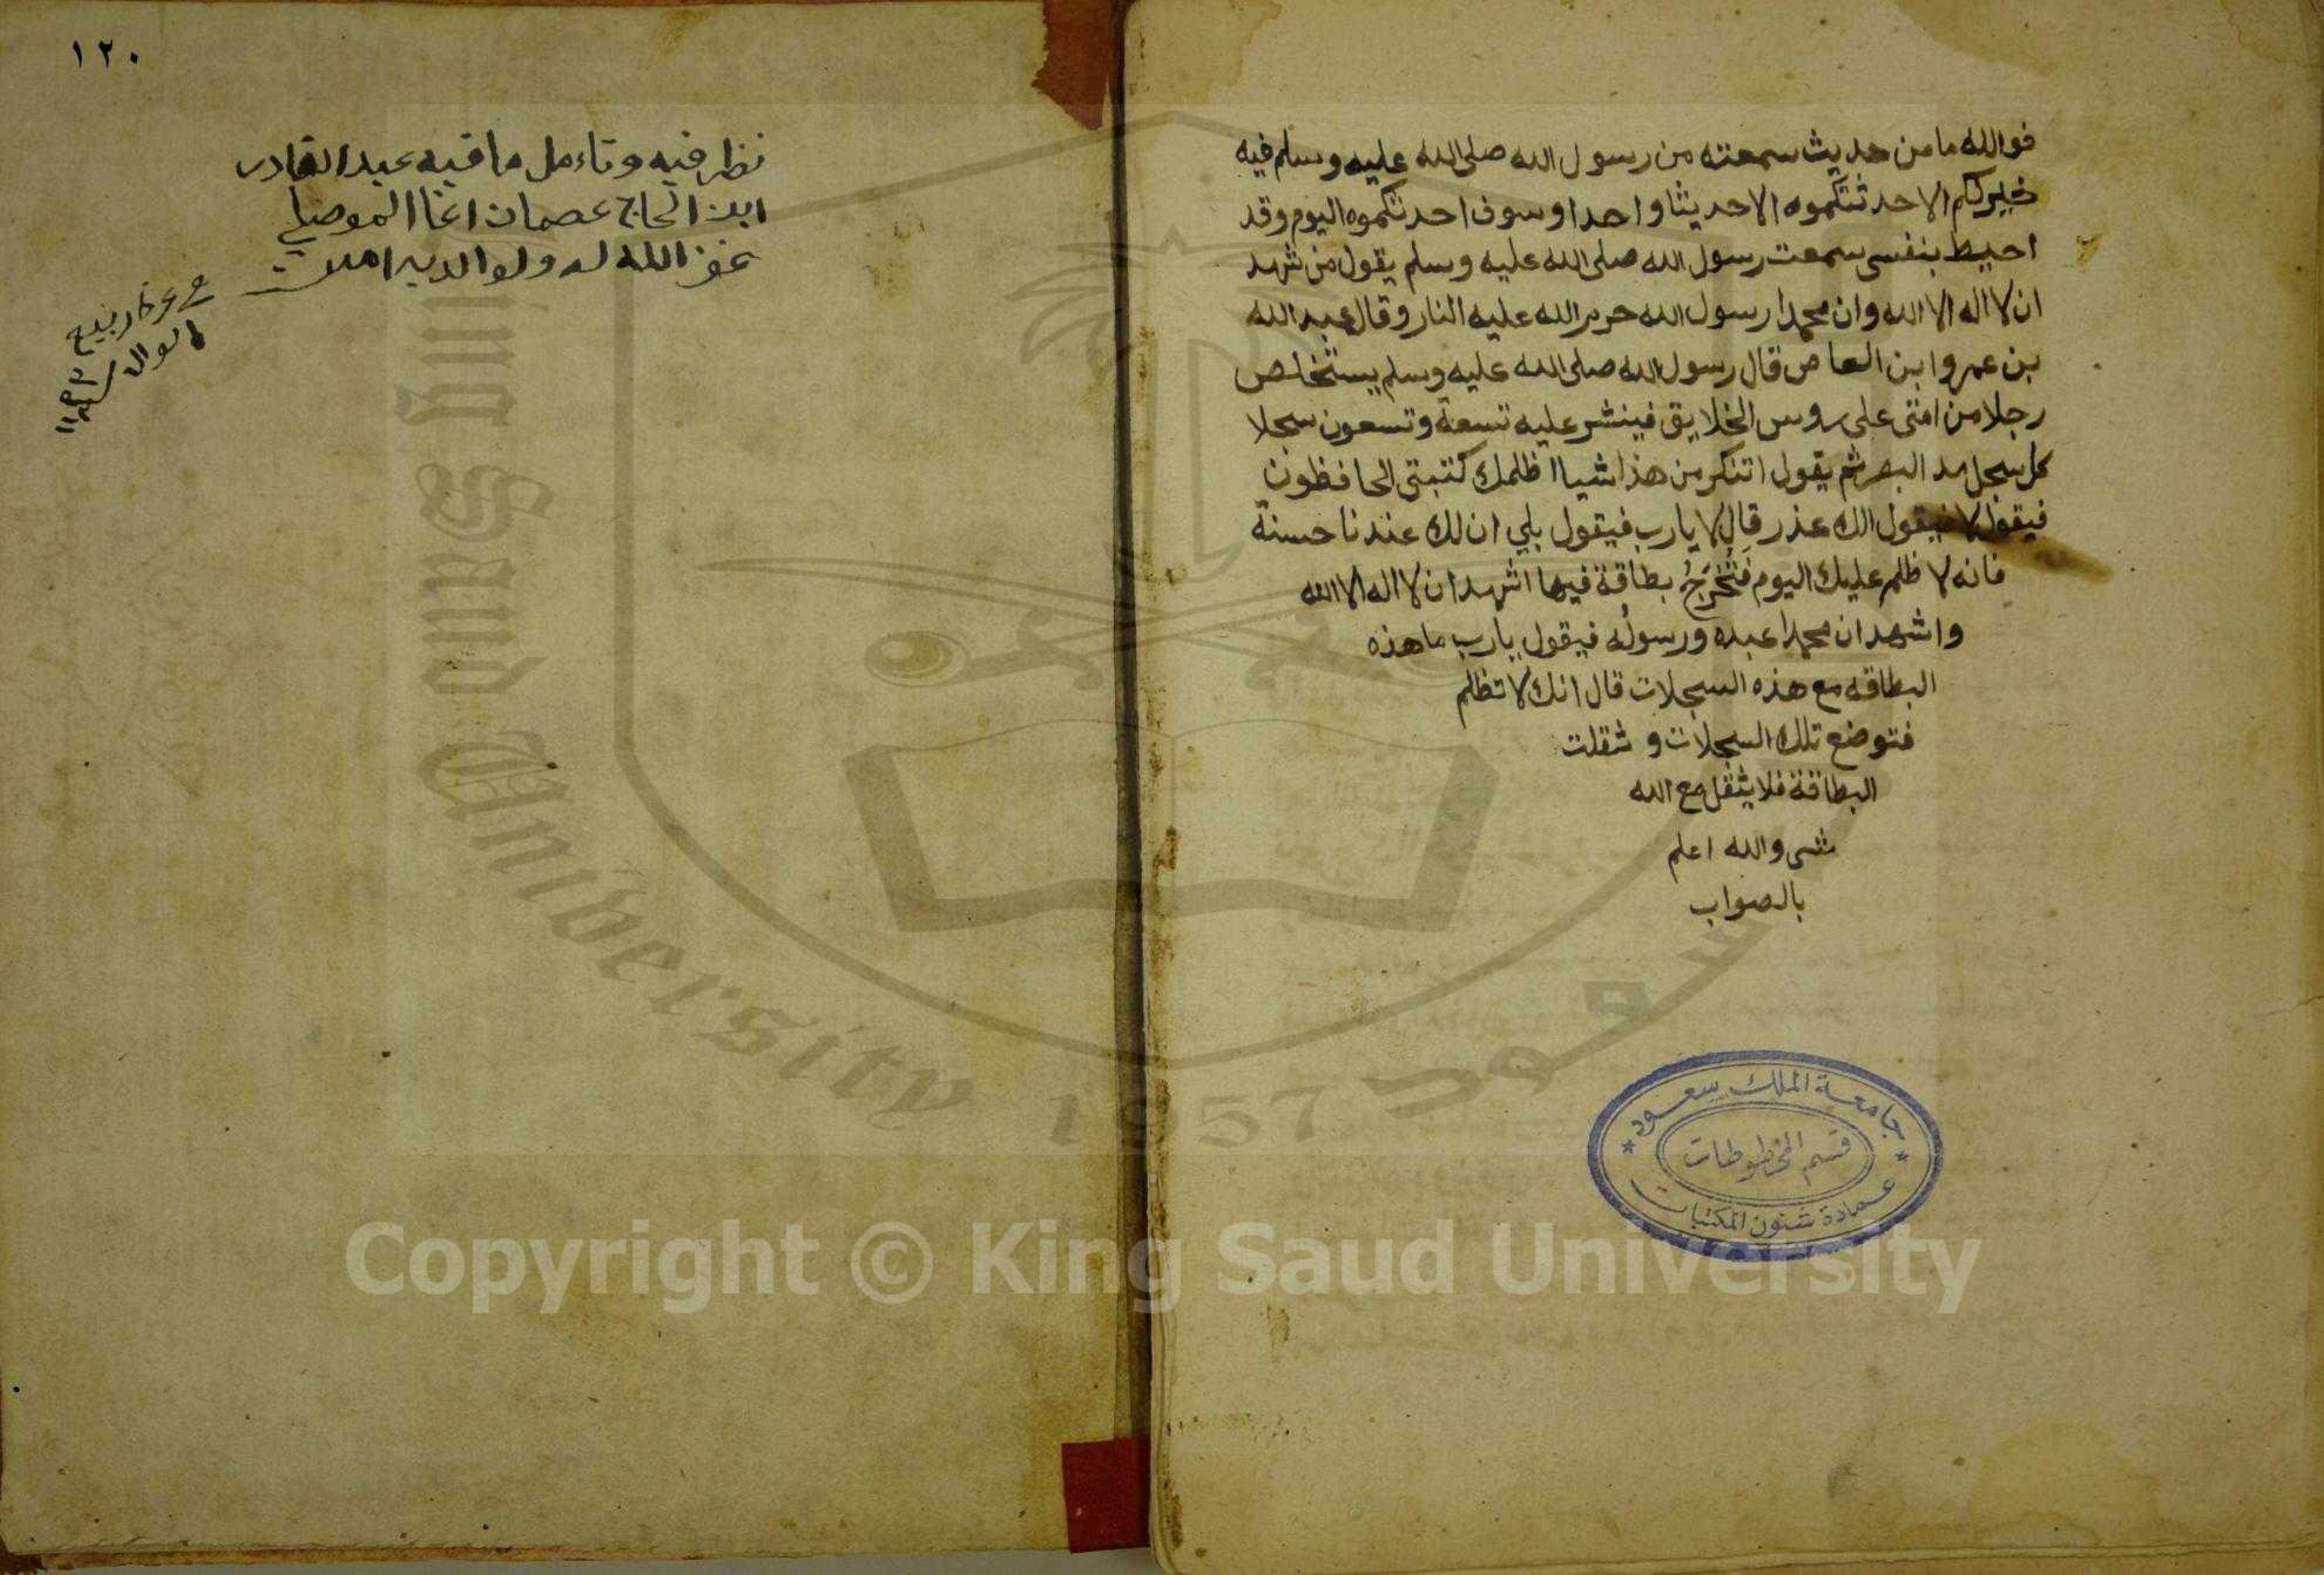 فوالله ما من حديث سمعته من رسول الله صلى الله عليه وسلم فيه
خيركم الا حدثتكموه الا حديثا واحدا وسوف احدثكموه اليوم وقد
احيط بنفسى سمعت رسول الله صلى الله عليه وسلم يقول من شهد
ان لا اله الا الله وان محمدا رسول الله حرم الله عليه النار وقال عبد الله
بن عمروا بن العاص قال رسول الله صلى الله عليه وسلم يستخلص
رجلا من امتى على روس الخلايق فينشر عليه تسعة وتسعون سجلا
كل سجل مد البصر ثم يقول اتنكر من هذا شيا اظلمك كتبتى الحافظون
فيقول لا فيقول الك عذر قال لا يارب فيقول بلي ان لك عندنا حسنة
فانه لا ظلم عليك اليوم فَتُخْرَجُ بطاقة فيها اشهد ان لا اله الا الله
واشهد ان محمدا عبده ورسولُه فيقول يارب ما هذه
البطاقه مع هذه السجلات قال انك لا تظلم
فتوضع تلك السجلات و ثقلت
البطاقة فلا يثقل مع الله
شى والله اعلم
بالصواب
جامعة الملك سعود
قسم المخطوطات
عمادة شئون المكتبات
١٢٠
نظر فيه وتاءمل ما فيه عبد القادر
ابن الحاج عصمان اغا الموصلي
غفر الله له ولوالديه امين
King Saud University
1957
سعود
Copyright © King Saud University